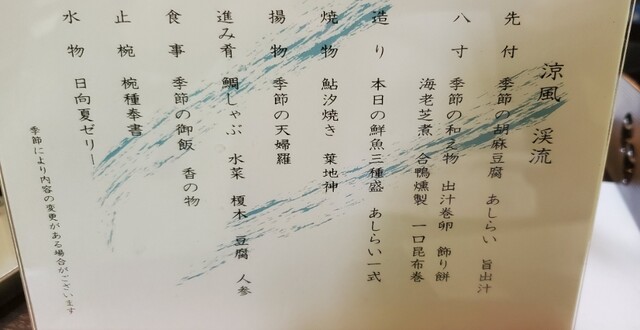 涼風 渓流
先付 季節の胡麻豆腐 あしらい 旨出汁
八寸 季節の和え物 出汁巻卵 飾り餅
海老芝煮 合鴨燻製 一口昆布巻
造り 本日の鮮魚三種盛 あしらい一式
焼物 鮎汐焼き 葉地神
揚物 季節の天婦羅
進み肴 鯛しゃぶ 水菜 榎木 豆腐 人参
食事 季節の御飯 香の物
止椀 椀種奉書
水物 日向夏ゼリー
季節により内容の変更がある場合がございます